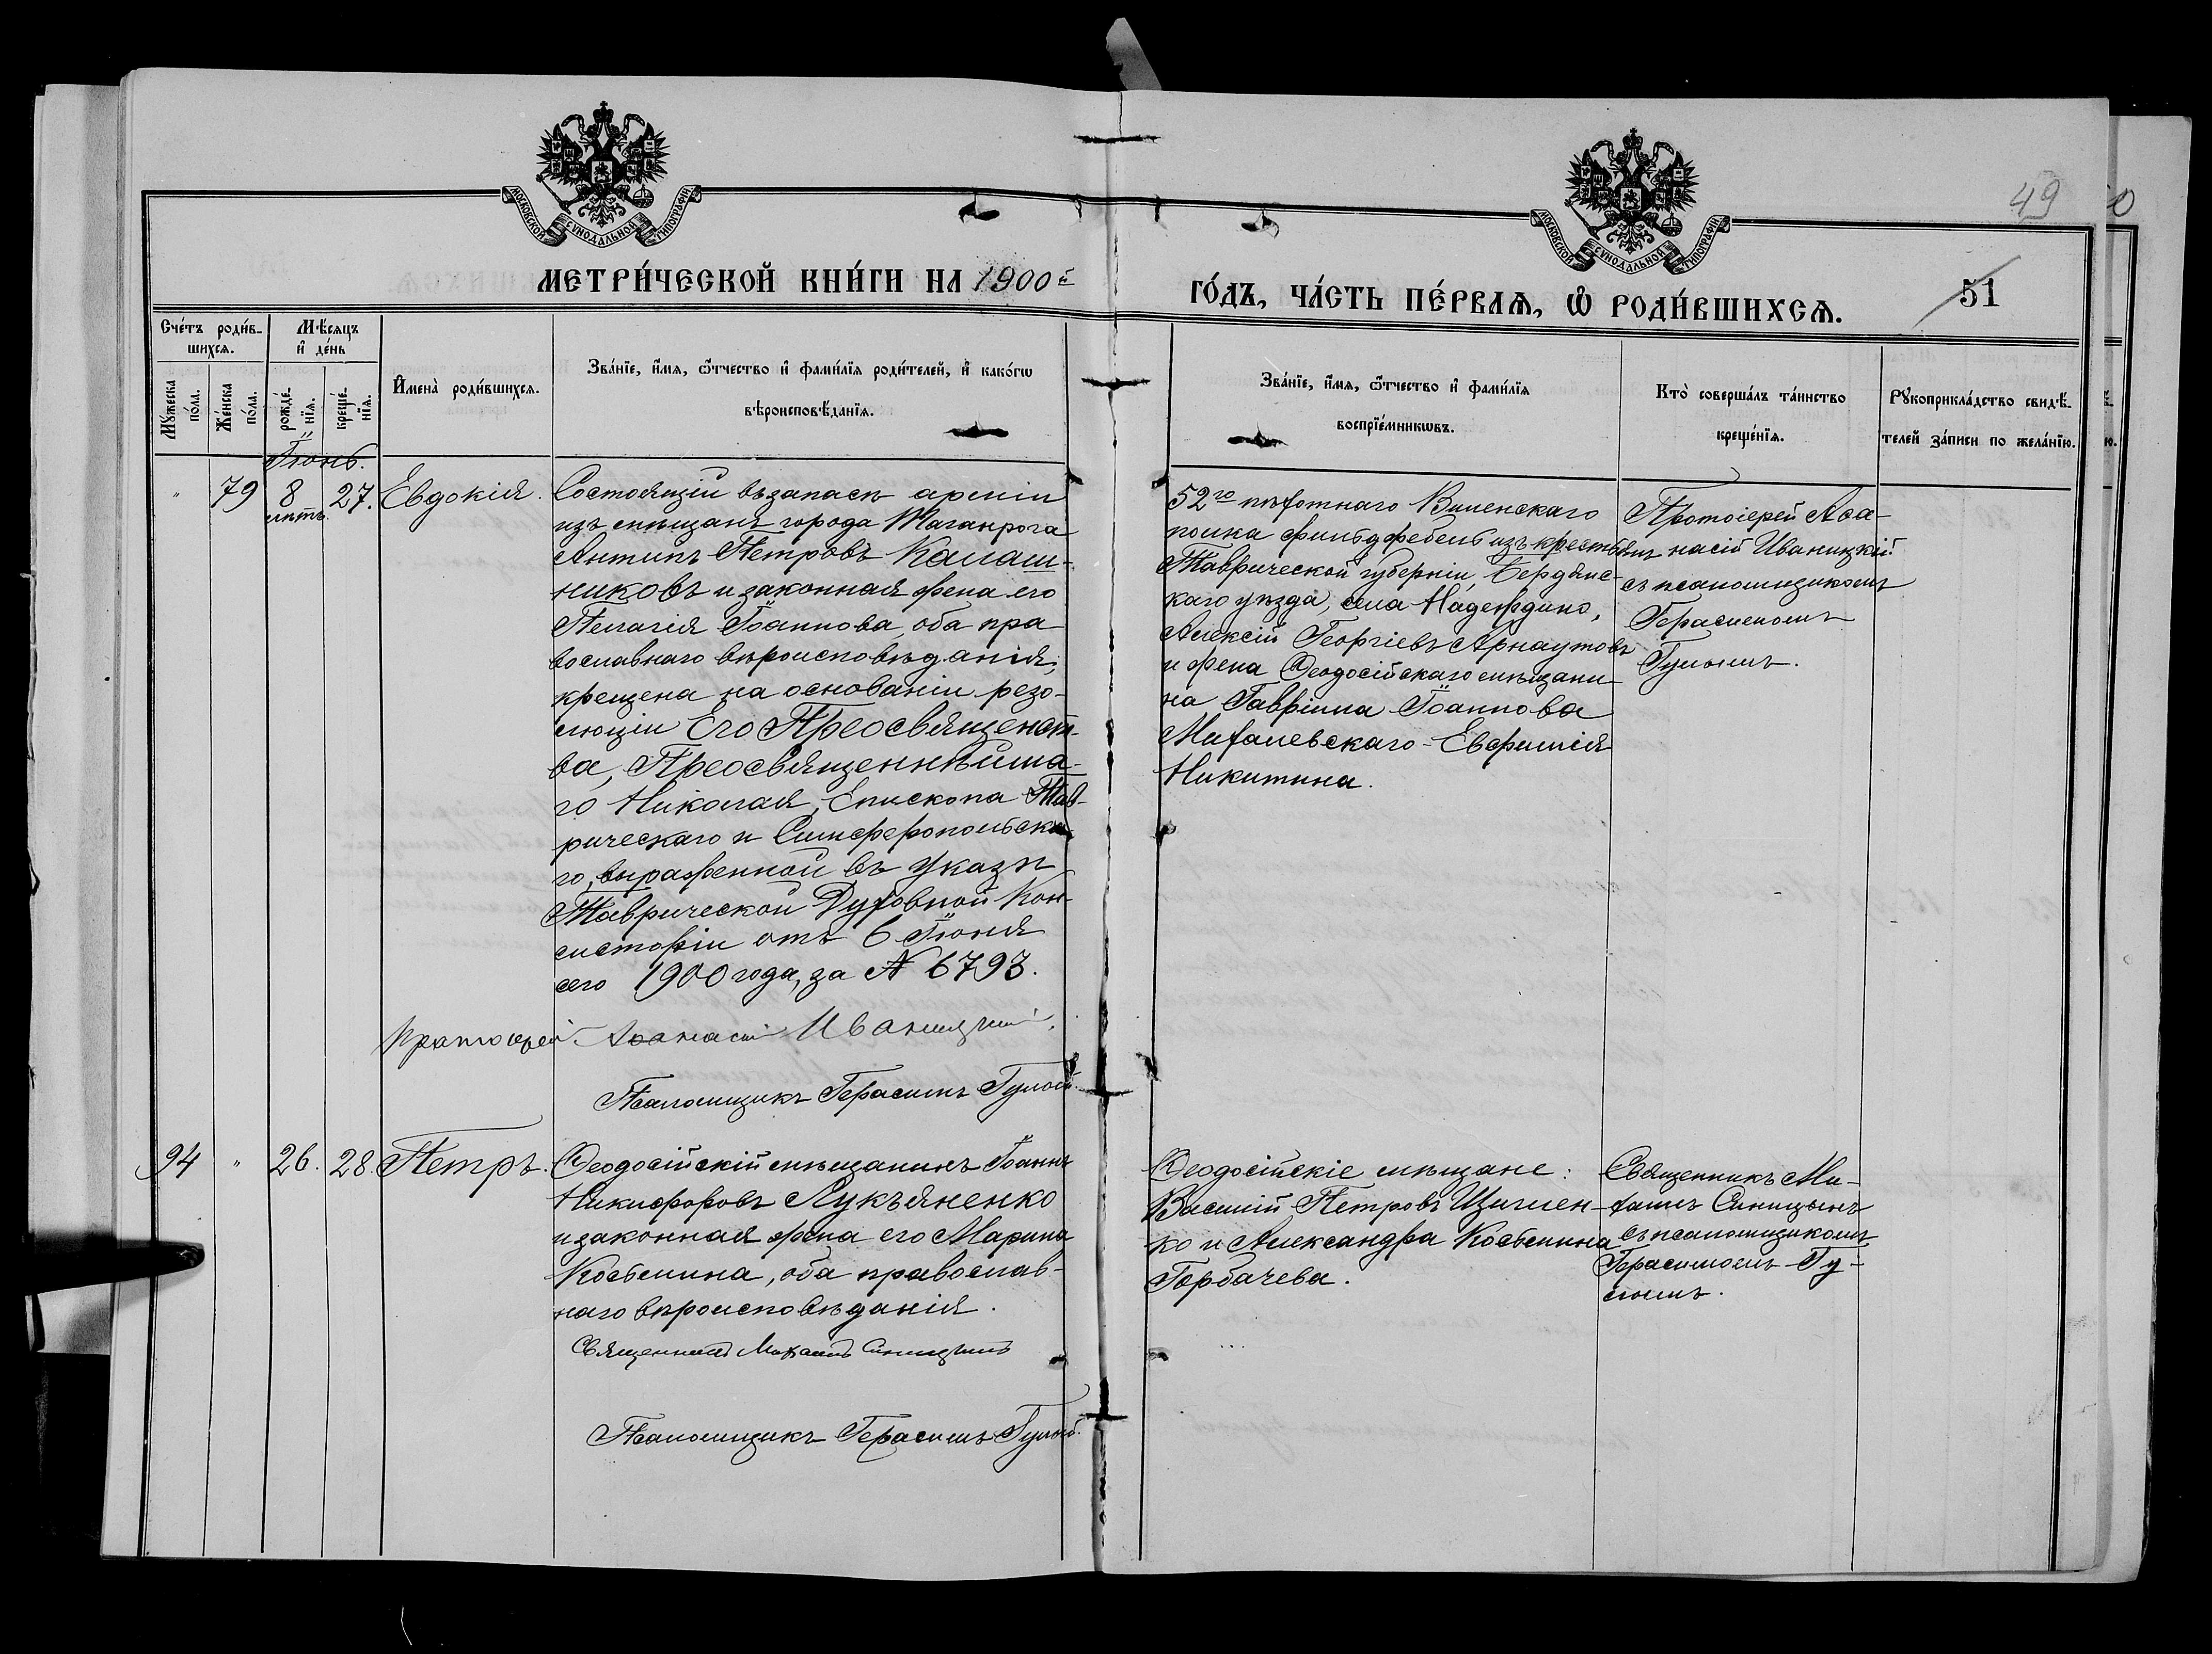 МОСКОВСКОЙ СѴНОДАЛЬНОЙ ТИПОГРАФІИ
МОСКОВСКОЙ СѴНОДАЛЬНОЙ ТИПОГРАФІИ
49
МЕТРИ́ЧЕСКОЙ КНИ́ГИ НА 1900й
ГО́ДЪ, ЧА́СТЬ ПЕ́РВАѦ, Ѡ҆ РОДИ́ВШИХСѦ.
51
Сче́тъ роди́в-
шихсѧ.
Мѣ́сѧцъ
и҆ де́нь
Мꙋ́жеска
по́ла.
Же́нска
по́ла.
рожде́-
нїѧ.
креще́-
нїѧ.
И҆мена̀ роди́вшихсѧ.
Зва́нїе, и҆́мѧ, ѻ҆́тчество и҆ фами́лїѧ роди́телей, и҆ како́гѡ
вѣроисповѣ́данїѧ.
Зва́нїе, и҆́мѧ, ѻ҆́тчество и҆ фами́лїѧ
воспрїе́мникѡвъ.
Кто̀ соверша́лъ та́инство
креще́нїѧ.
Рꙋкоприкла́дство свидѣ́-
телей за́писи по жела́нїю.
Іюнь.
" 79 8 27. Евдокія.
лѣтъ.
Состоящій въ запасѣ арміи
изъ мѣщанъ города Таганрога
Антипъ Петровъ Калаш-
никовъ и законная жена его
Пелагія Іоаннова, оба пра-
вославнаго вѣроисповѣданія;
крещена на основаніи резо-
люціи Его Преосвященст-
ва, Преосвященнѣйша-
го Николая, Епископа Тав-
рическаго и Симферопольска-
го, выраженной въ указѣ
Таврической Духовной Кон-
систоріи отъ 6 Іюня
сего 1900 года, за № 6793.
Протоіерей Аѳанасій Иваницкій.
Псаломщикъ Герасимъ Гулый
52го пѣхотнаго Виленскаго
полка фельдфебель изъ крестьянъ
Таврической губерніи, Бердянс-
каго уѣзда, села Надеждино,
Алексій Георгіевъ Арнаутовъ
и жена Ѳеодосійскаго мѣщани-
на Гавріила Іоаннова
Михалевскаго - Евфимія
Никитина.
Протоіерей Аѳа-
насій Иваницкій
съ псаломщикомъ
Герасимомъ
Гулымъ.
94 " 26. 28. Петръ.
Ѳеодосійскій мѣщанинъ Іоаннъ
Никифоровъ Лукъяненко
и законная жена его Марина
Косьмина, оба православ-
наго вѣроисповѣданія.
Священникъ Михаилъ Синицынъ
Псаломщикъ Герасимъ Гулый.
Ѳеодосійскіе мѣщане:
Василій Петровъ Изюмен-
ко и Александра Косьмина
Горбачева.
Священникъ Ми-
хаилъ Синицынъ
съ псаломщикомъ
Герасимомъ Гу-
лымъ.